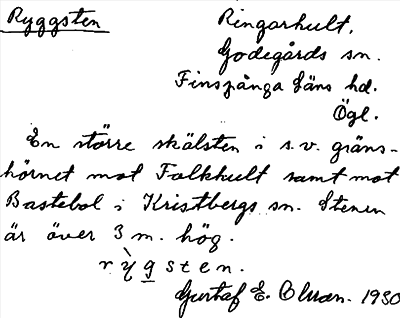 Ryggsten
Ringarhult,
Godegårds sn.
Finspånga läns hd.
Ögl.
En större skälsten i s.v. gräns-
hörnet mot Falkhult samt mot
Bastebol i Kristbergs sn. Stenen
är över 3 m. hög.
rỳgsten.
Gustaf E. Olsson. 1930